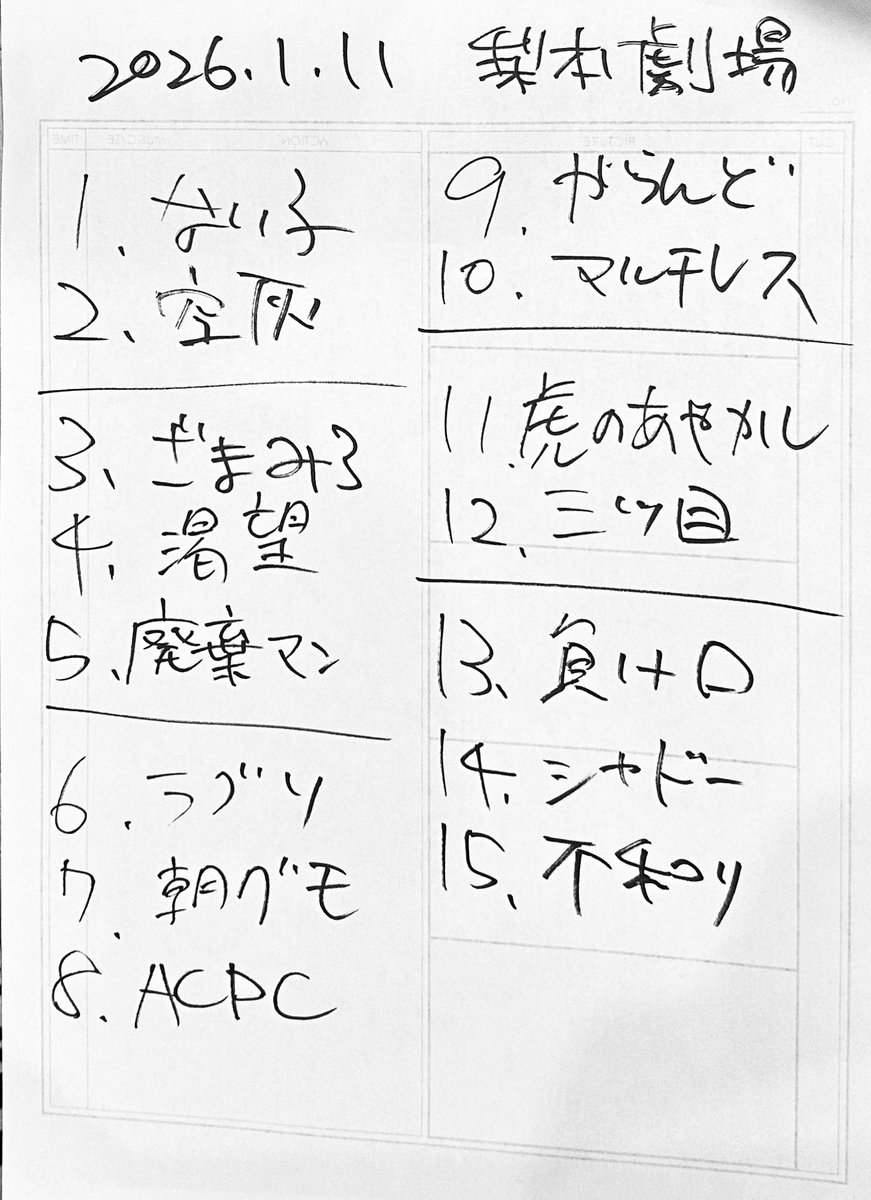 2026.1.11 梨本劇場
1. ない子
2. 空灰
3. ざまみろ
4. 渇望
5. 廃棄マン
6. ラブリ
7. 朝グモ
8. ACDC
9. がらんど
10. マルチレス
11. 虎のあやかし
12. 三ツ目
13. 負け口
14. シャドー
15. 不和リ